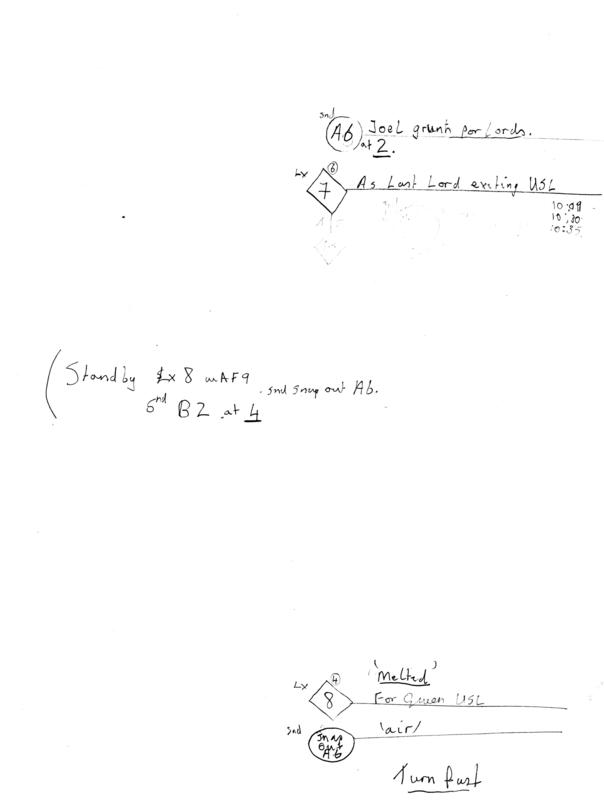 snd A6 Joel grunts for Lords.
at 2.
Lx 7 6 As Last Lord exiting USL
10:30
10:35
Standby Lx 8 snd snap out A6.
Snd B2 at 4
'Melted'
Lx 8 4 For Queen USL
snd snap out A6 'air'
Turn fast